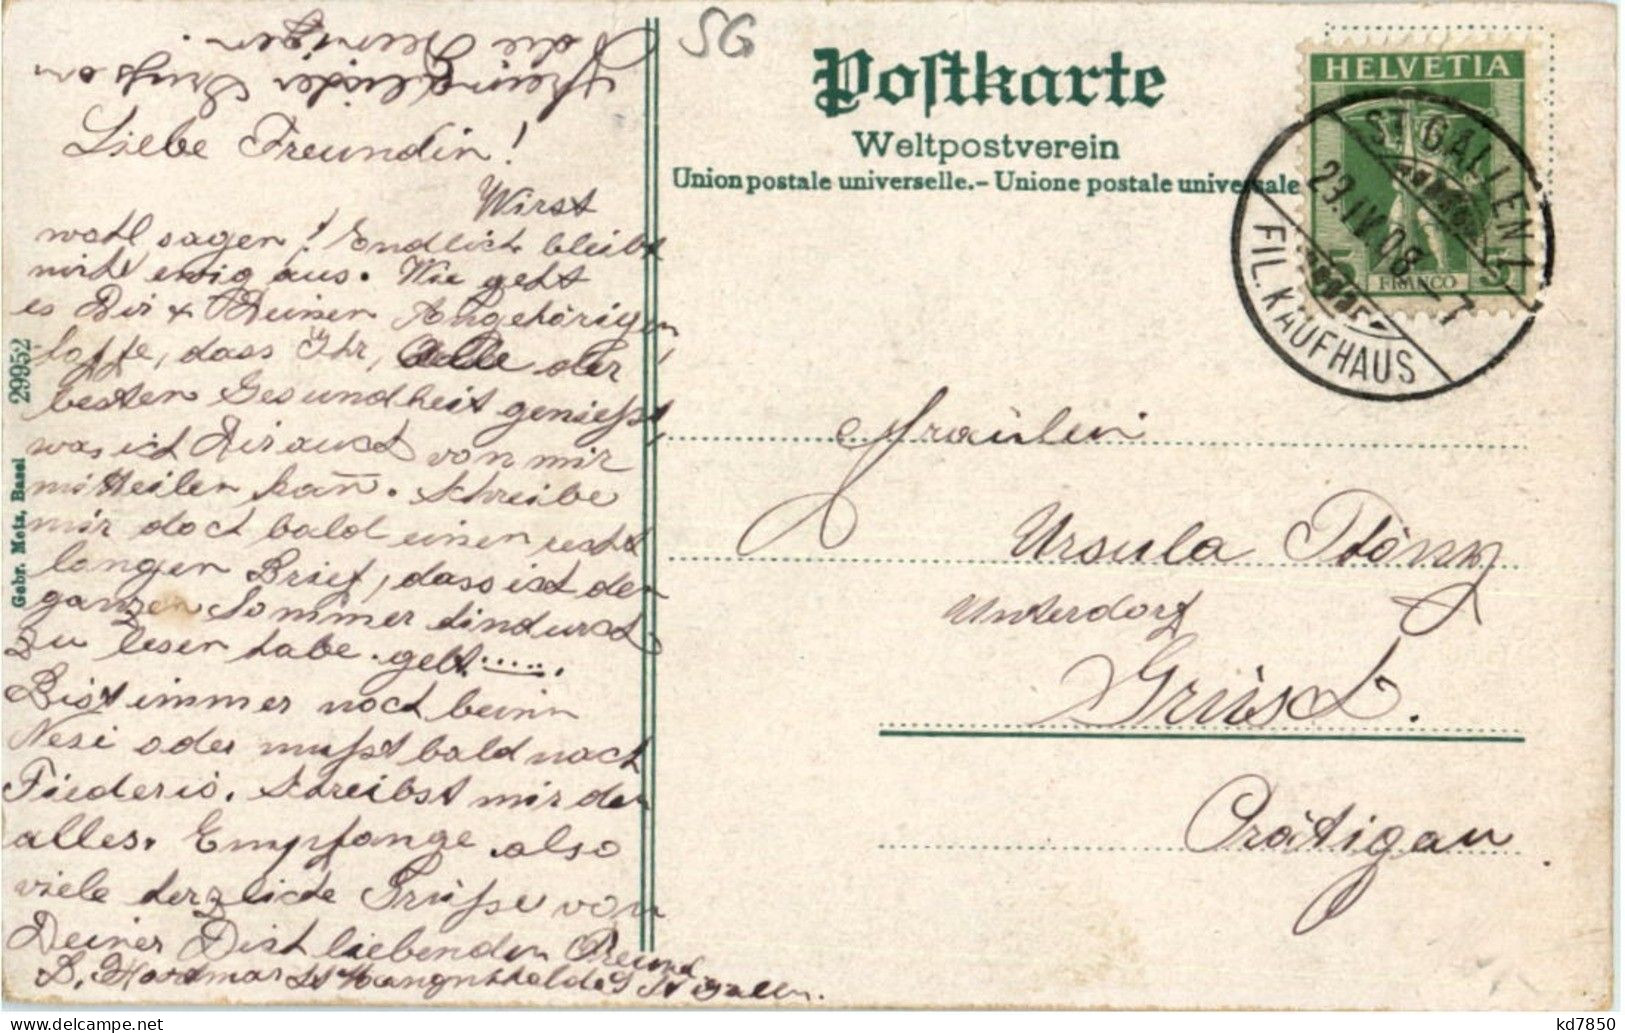 SG
Postkarte
Weltpostverein
Union postale universelle.- Unione postale universale
HELVETIA
5 FRANCO 5
ST. GALLEN 1
23.IV.08.-7
FIL. KAUFHAUS
Gebr. Metz, Basel 29952
Liebe Freundin!
Wirst
wohl sagen! Endlich bleibt
nicht ewig aus. Wie geht
es Dir & Deinen Angehörigen
hoffe, dass Ihr, Alle der
besten Gesundheit genießt,
was ich Dir auch von mir
mitteilen kann̄. Schreibe
mir doch bald einen recht
langen Brief, dass ich den
ganzen Sommer hindurch
zu lesen habe. gelt......
Bist immer noch beim
Nesi oder mußt bald nach
Fiederis. Schreibst mir den
alles. Empfange also
viele herzliche Grüße von
Deiner Dich liebenden Freund
St Gallen.
die Deinigen.
Fräulein
Ursula
Unterdorf
Grüsch.
Prätigau
kd7850